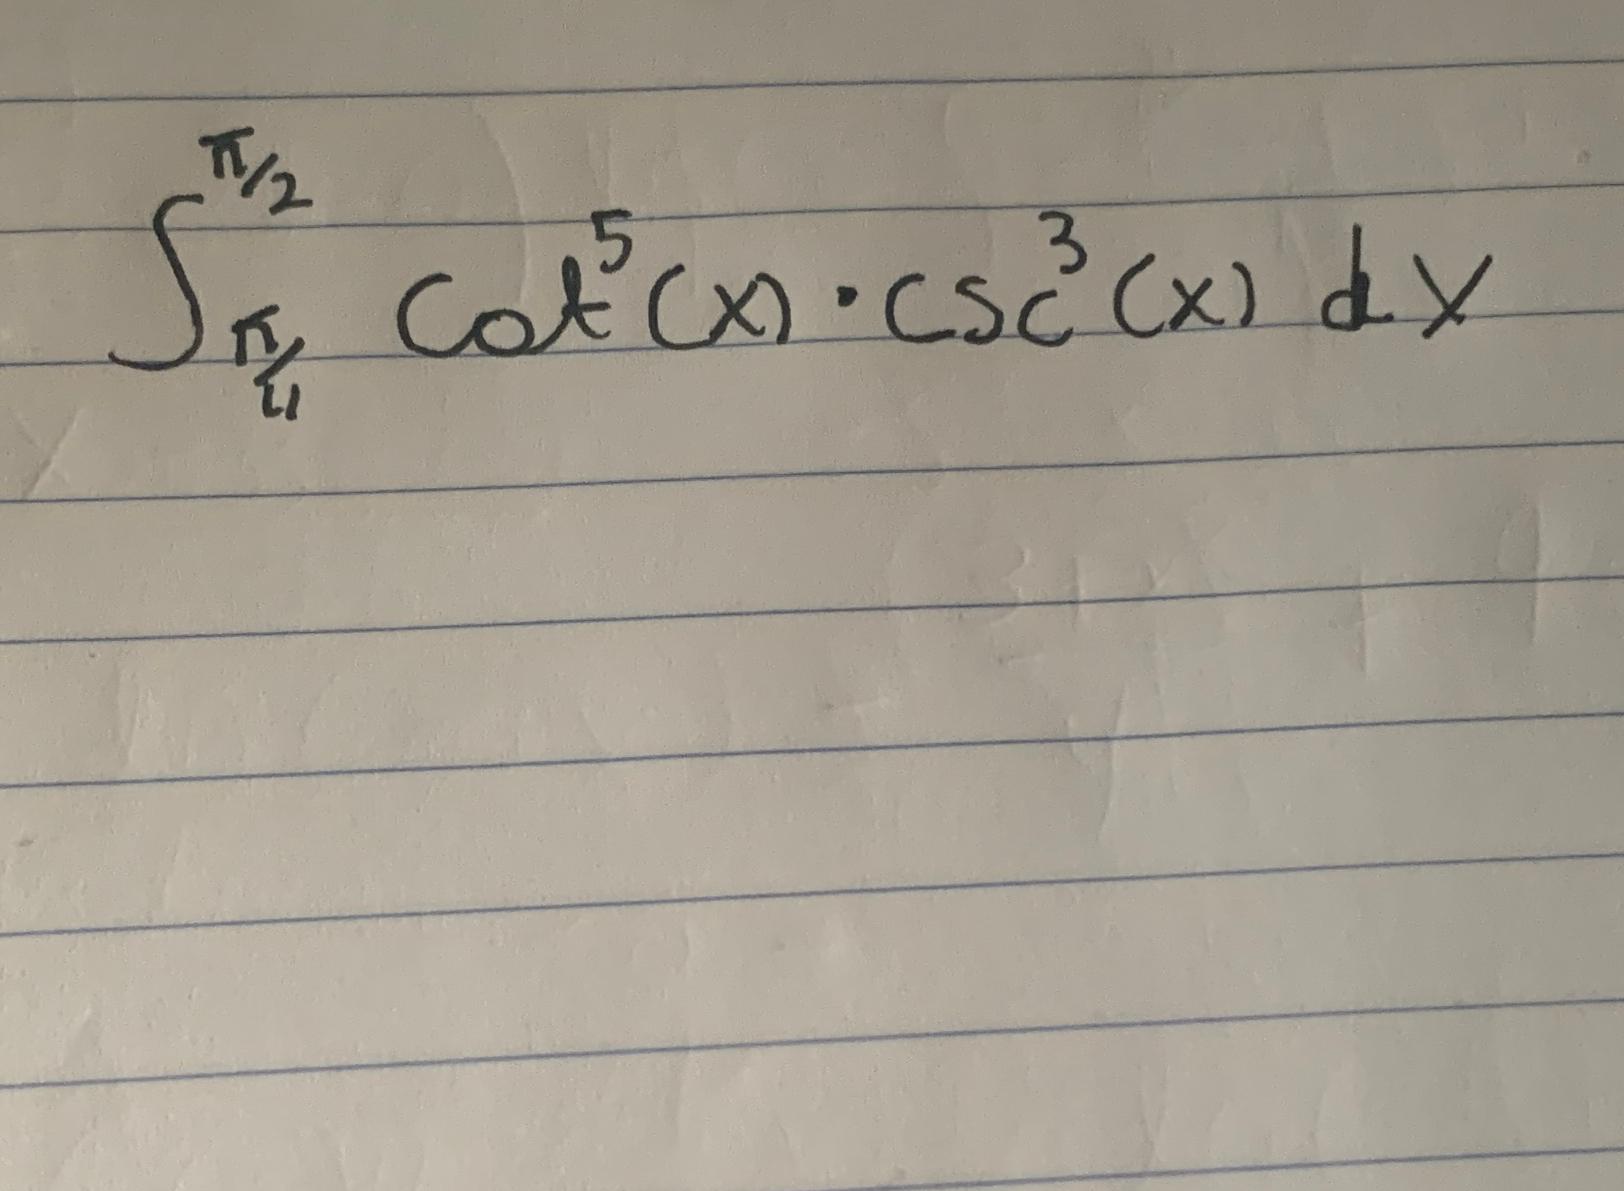 ∫_{π/4}^{π/2} cot⁵(x) · csc³(x) dx